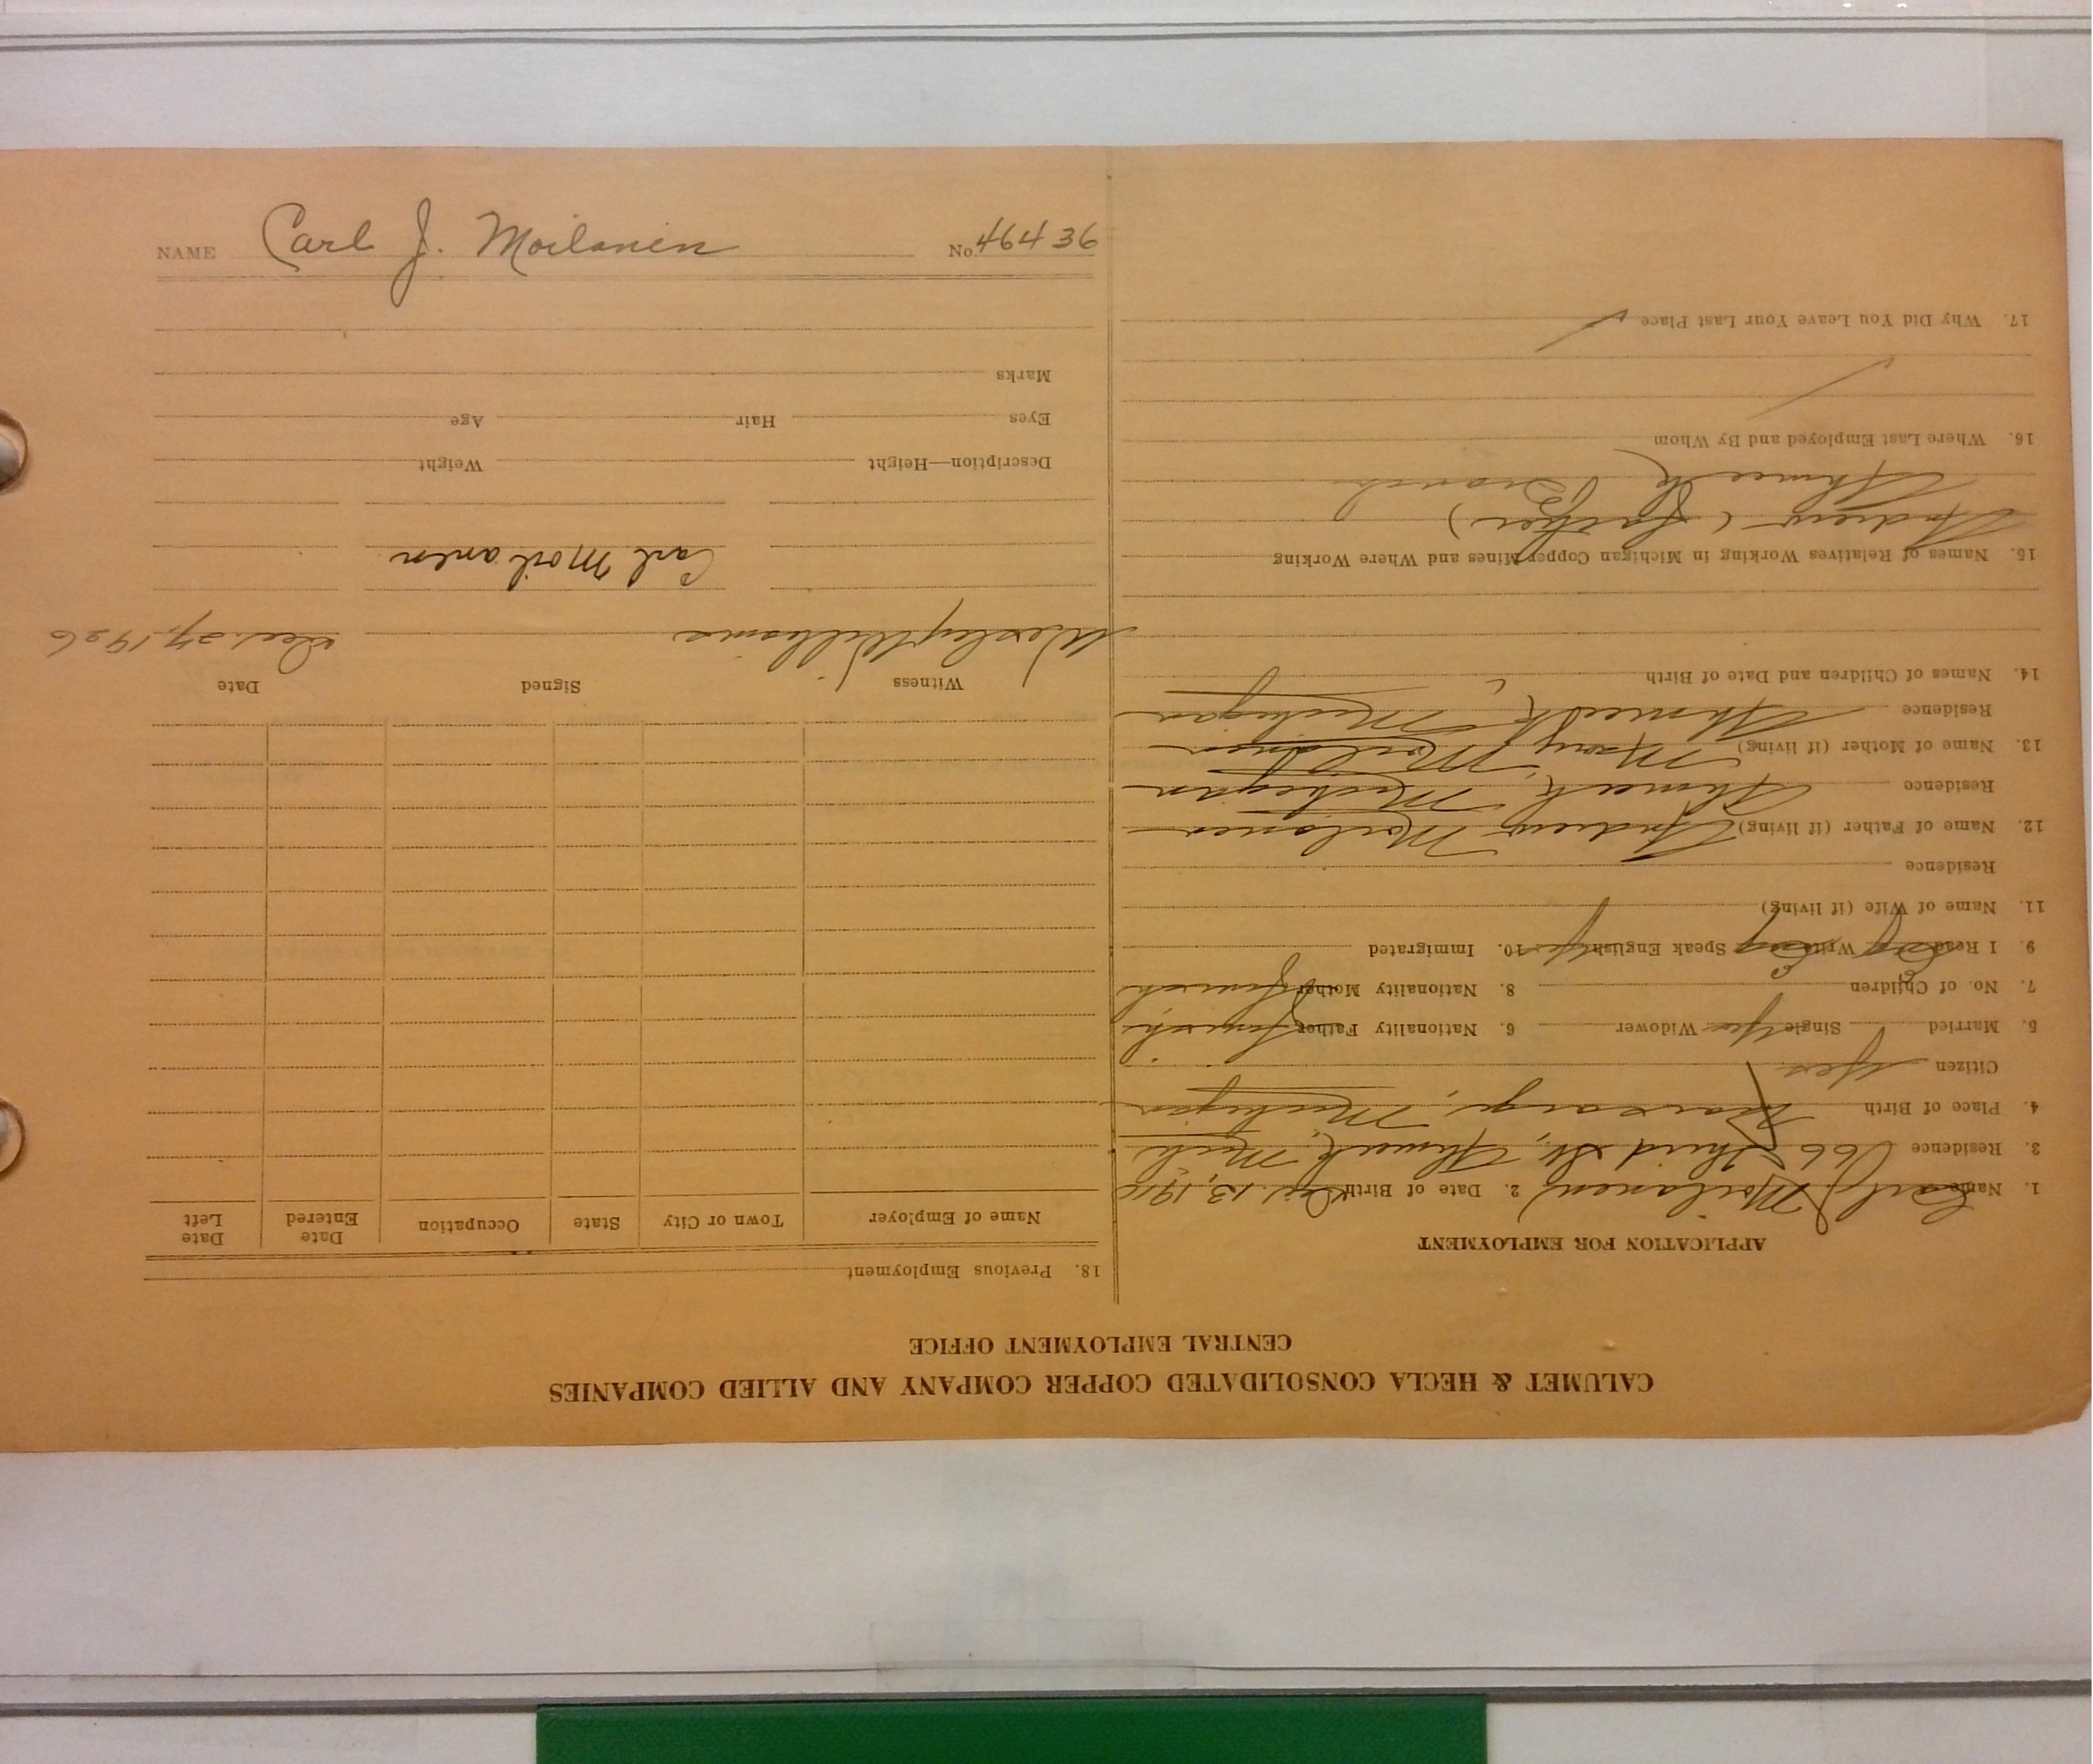 CALUMET & HECLA CONSOLIDATED COPPER COMPANY AND ALLIED COMPANIES
CENTRAL EMPLOYMENT OFFICE
APPLICATION FOR EMPLOYMENT
1. Name Carl J Moilanen 2. Date of Birth 13, 1910
3. Residence 66 Third St., Ahmeek, Mich
4. Place of Birth Kearsarge, Michigan
Citizen Yes
5. Married Single Yes Widower 6. Nationality Father Finnish
7. No. of Children 8. Nationality Mother Finnish
9. I Read Eng Write Eng Speak English Yes 10. Immigrated
11. Name of Wife (if living)
Residence
12. Name of Father (if living) Andrew Moilanen
Residence Ahmeek, Michigan
13. Name of Mother (if living) Mary Moilanen
Residence Ahmeek, Michigan
14. Names of Children and Date of Birth
15. Names of Relatives Working in Michigan Copper Mines and Where Working
Andrew (Father)
Ahmeek Branch
16. Where Last Employed and By Whom
17. Why Did You Leave Your Last Place
18. Previous Employment
Name of Employer Town or City State Occupation Date Entered Date Left
Witness Signed Date
Wesley Williams Dec. 27, 1926
Carl Moilanen
Description—Height Weight
Eyes Hair Age
Marks
NAME Carl J. Moilanen No. 46436